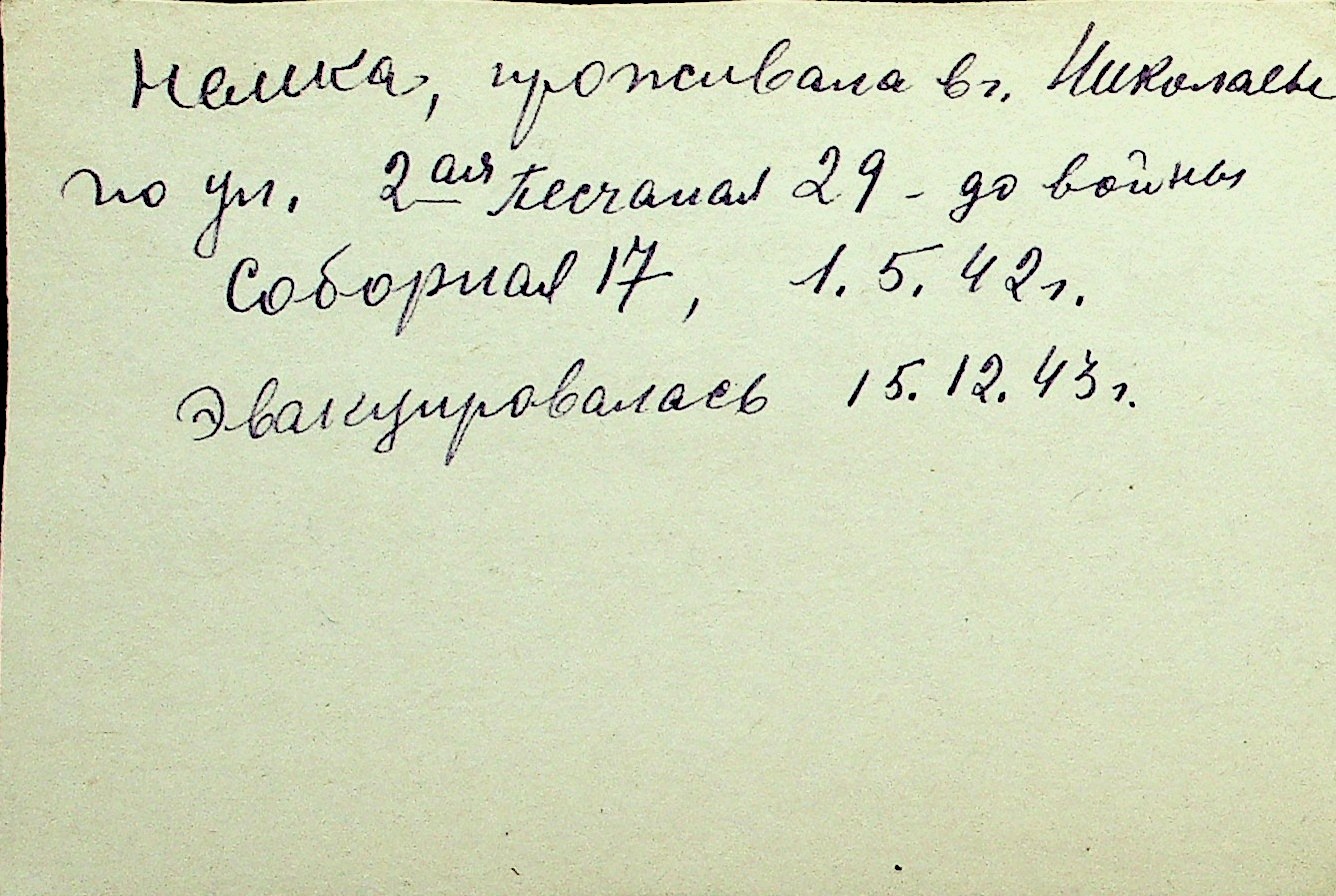 Немка, проживала в г. Николаеве
по ул. 2ая Песчаная 29 - до войны
Соборная 17, 1.5.42г.
Эвакуировалась 15.12.43г.